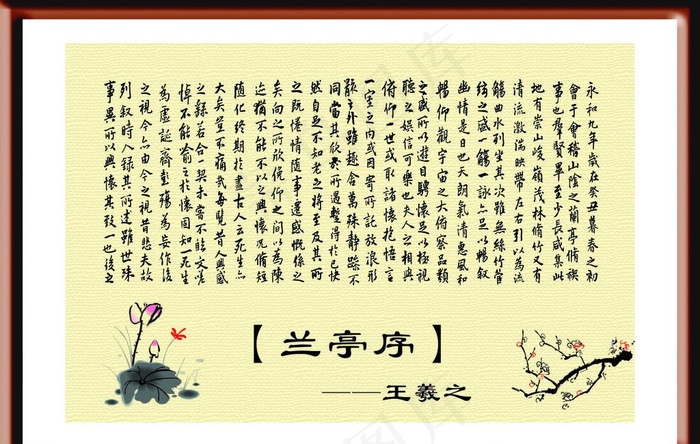 永和九年歲在癸丑暮春之初
會于會稽山陰之蘭亭脩禊
事也群賢畢至少長咸集此
地有崇山峻嶺茂林脩竹又有
清流激湍映帶左右引以為流
觴曲水列坐其次雖無絲竹管
絃之盛一觴一詠亦足以暢敘
幽情是日也天朗氣清惠風和
暢仰觀宇宙之大俯察品類
之盛所以遊目騁懷足以極視
聽之娛信可樂也夫人之相與
俯仰一世或取諸懷抱悟言
一室之內或因寄所託放浪形
骸之外雖趣舍萬殊靜躁不
同當其欣於所遇暫得於己快
然自足不知老之將至及其所
之既倦情隨事遷感慨係之
矣向之所欣俛仰之間以為陳
迹猶不能不以之興懷況脩短
隨化終期於盡古人云死生亦
大矣豈不痛哉每覽昔人興感
之由若合一契未嘗不臨文嗟
悼不能喻之於懷固知一死生
為虛誕齊彭殤為妄作後
之視今亦由今之視昔悲夫故
列敘時人錄其所述雖世殊
事異所以興懷其致一也後之
【兰亭序】
——王羲之